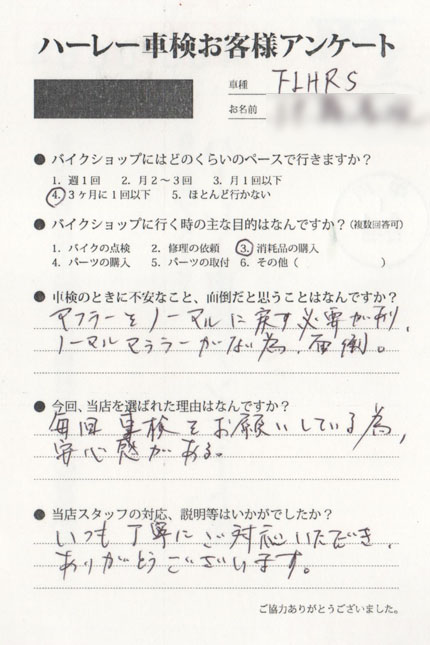 ハーレー車検お客様アンケート
車種 FLHRS
お名前
● バイクショップにはどのくらいのペースで行きますか？
1. 週1回 2. 月2～3回 3. 月1回以下
4. 3ヶ月に1回以下 5. ほとんど行かない
● バイクショップに行く時の主な目的はなんですか？（複数回答可）
1. バイクの点検 2. 修理の依頼 3. 消耗品の購入
4. パーツの購入 5. パーツの取付 6. その他（ ）
● 車検のときに不安なこと、面倒だと思うことはなんですか？
マフラーをノーマルに戻す必要が有、
ノーマルマフラーがない為、面倒。
● 今回、当店を選ばれた理由はなんですか？
毎回車検をお願いしている為、
安心感がある。
● 当店スタッフの対応、説明等はいかがでしたか？
いつも丁寧にご対応いただき、
ありがとうございます。
ご協力ありがとうございました。